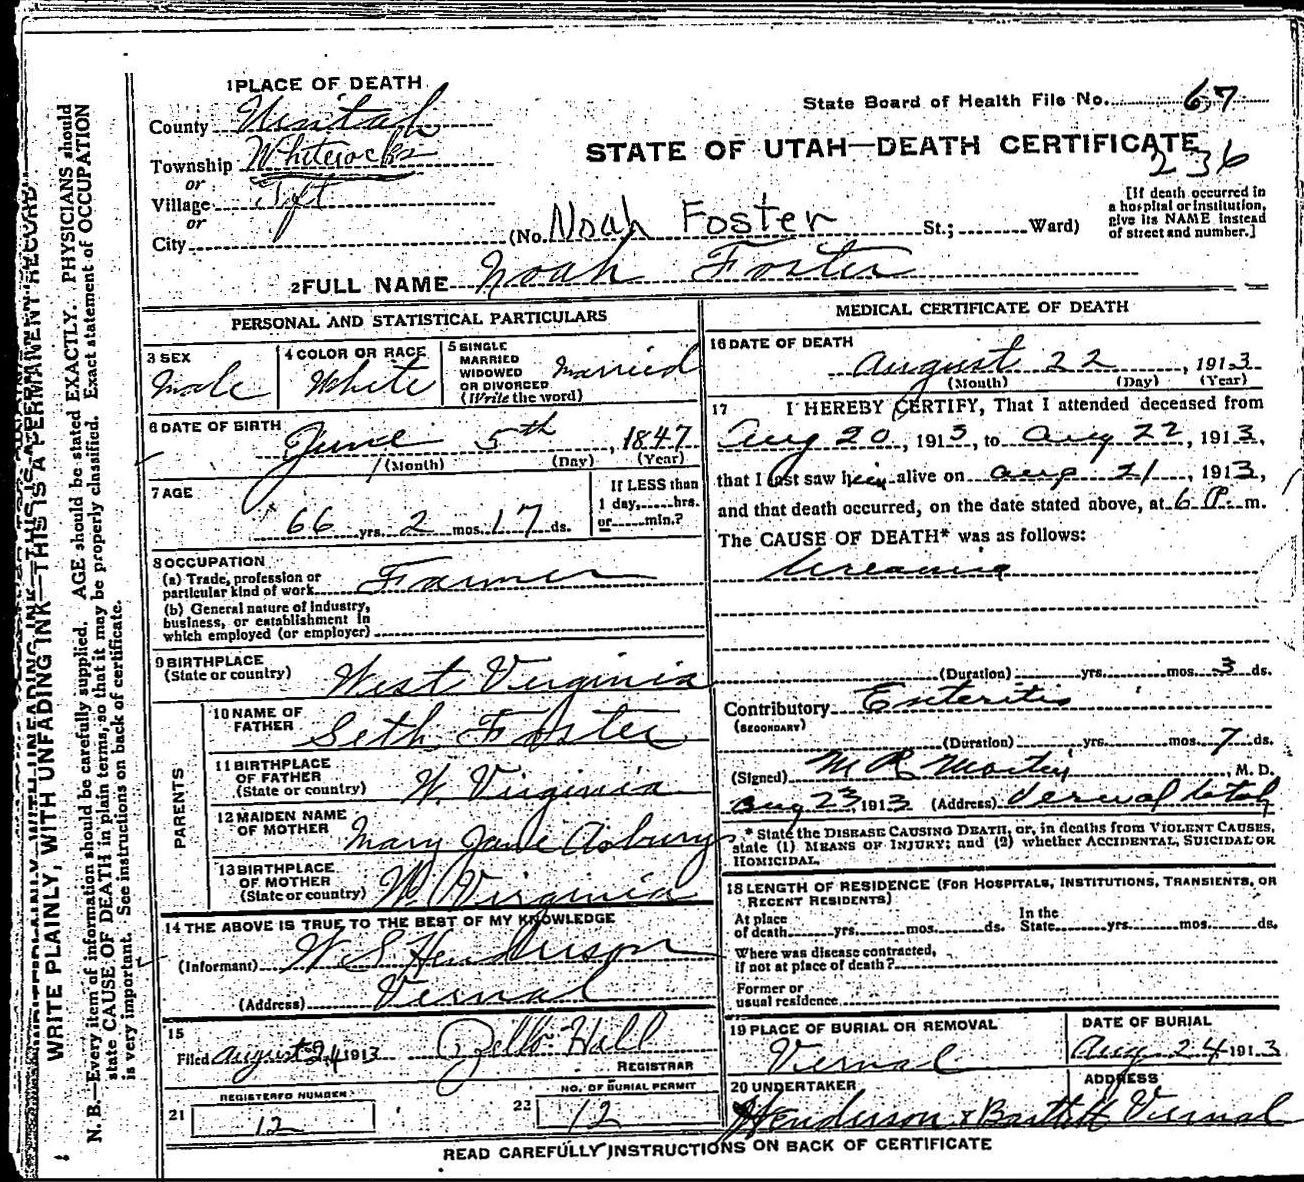 1 PLACE OF DEATH
State Board of Health File No. 67
County Uintah
STATE OF UTAH—DEATH CERTIFICATE
236
Township Whiterocks
or
Village Tift
or
City
(No. Noah Foster St.; Ward)
[If death occurred in
a hospital or institution,
give its NAME instead
of street and number.]
2 FULL NAME Noah Foster
PERSONAL AND STATISTICAL PARTICULARS
3 SEX
Male
4 COLOR OR RACE
White
5 SINGLE
MARRIED
WIDOWED
OR DIVORCED
(Write the word)
Married
6 DATE OF BIRTH
June 5th, 1847
(Month) (Day) (Year)
7 AGE
66 yrs. 2 mos. 17 ds.
If LESS than
1 day, hrs.
or min.?
8 OCCUPATION
(a) Trade, profession or
particular kind of work Farmer
(b) General nature of industry,
business, or establishment in
which employed (or employer)
9 BIRTHPLACE
(State or country) West Virginia
PARENTS
10 NAME OF
FATHER Seth Foster
11 BIRTHPLACE
OF FATHER
(State or country) W. Virginia
12 MAIDEN NAME
OF MOTHER Mary Jane Asbury
13 BIRTHPLACE
OF MOTHER
(State or country) W. Virginia
14 THE ABOVE IS TRUE TO THE BEST OF MY KNOWLEDGE
(Informant) W S Henderson
(Address) Vernal
15
Filed August 24 1913 Hall
REGISTRAR
REGISTERED NUMBER
21 12
NO. OF BURIAL PERMIT
22 12
MEDICAL CERTIFICATE OF DEATH
16 DATE OF DEATH
August 22, 1913
(Month) (Day) (Year)
17 I HEREBY CERTIFY, That I attended deceased from
Aug 20, 1913, to Aug 22, 1913,
that I last saw him alive on Aug 21, 1913,
and that death occurred, on the date stated above, at 6 P. m.
The CAUSE OF DEATH* was as follows:
Uraemia
(Duration) yrs. mos. 3 ds.
Contributory Enteritis
(SECONDARY)
(Duration) yrs. mos. 7 ds.
(Signed) M R, M. D.
Aug 23, 1913 (Address) Vernal Utah
* State the DISEASE CAUSING DEATH, or, in deaths from VIOLENT CAUSES,
state (1) MEANS OF INJURY; and (2) whether ACCIDENTAL, SUICIDAL OR
HOMICIDAL.
18 LENGTH OF RESIDENCE (FOR HOSPITALS, INSTITUTIONS, TRANSIENTS, OR
RECENT RESIDENTS)
At place In the
of death yrs. mos. ds. State yrs. mos. ds.
Where was disease contracted,
if not at place of death?
Former or
usual residence
19 PLACE OF BURIAL OR REMOVAL
Vernal
DATE OF BURIAL
Aug 24 1913
20 UNDERTAKER
Henderson & Bartlett
ADDRESS
Vernal
READ CAREFULLY INSTRUCTIONS ON BACK OF CERTIFICATE
WRITE PLAINLY, WITH UNFADING INK—THIS IS A PERMANENT RECORD
N. B.—Every item of information should be carefully supplied. AGE should be stated EXACTLY. PHYSICIANS should
state CAUSE OF DEATH in plain terms, so that it may be properly classified. Exact statement of OCCUPATION
is very important. See instructions on back of certificate.